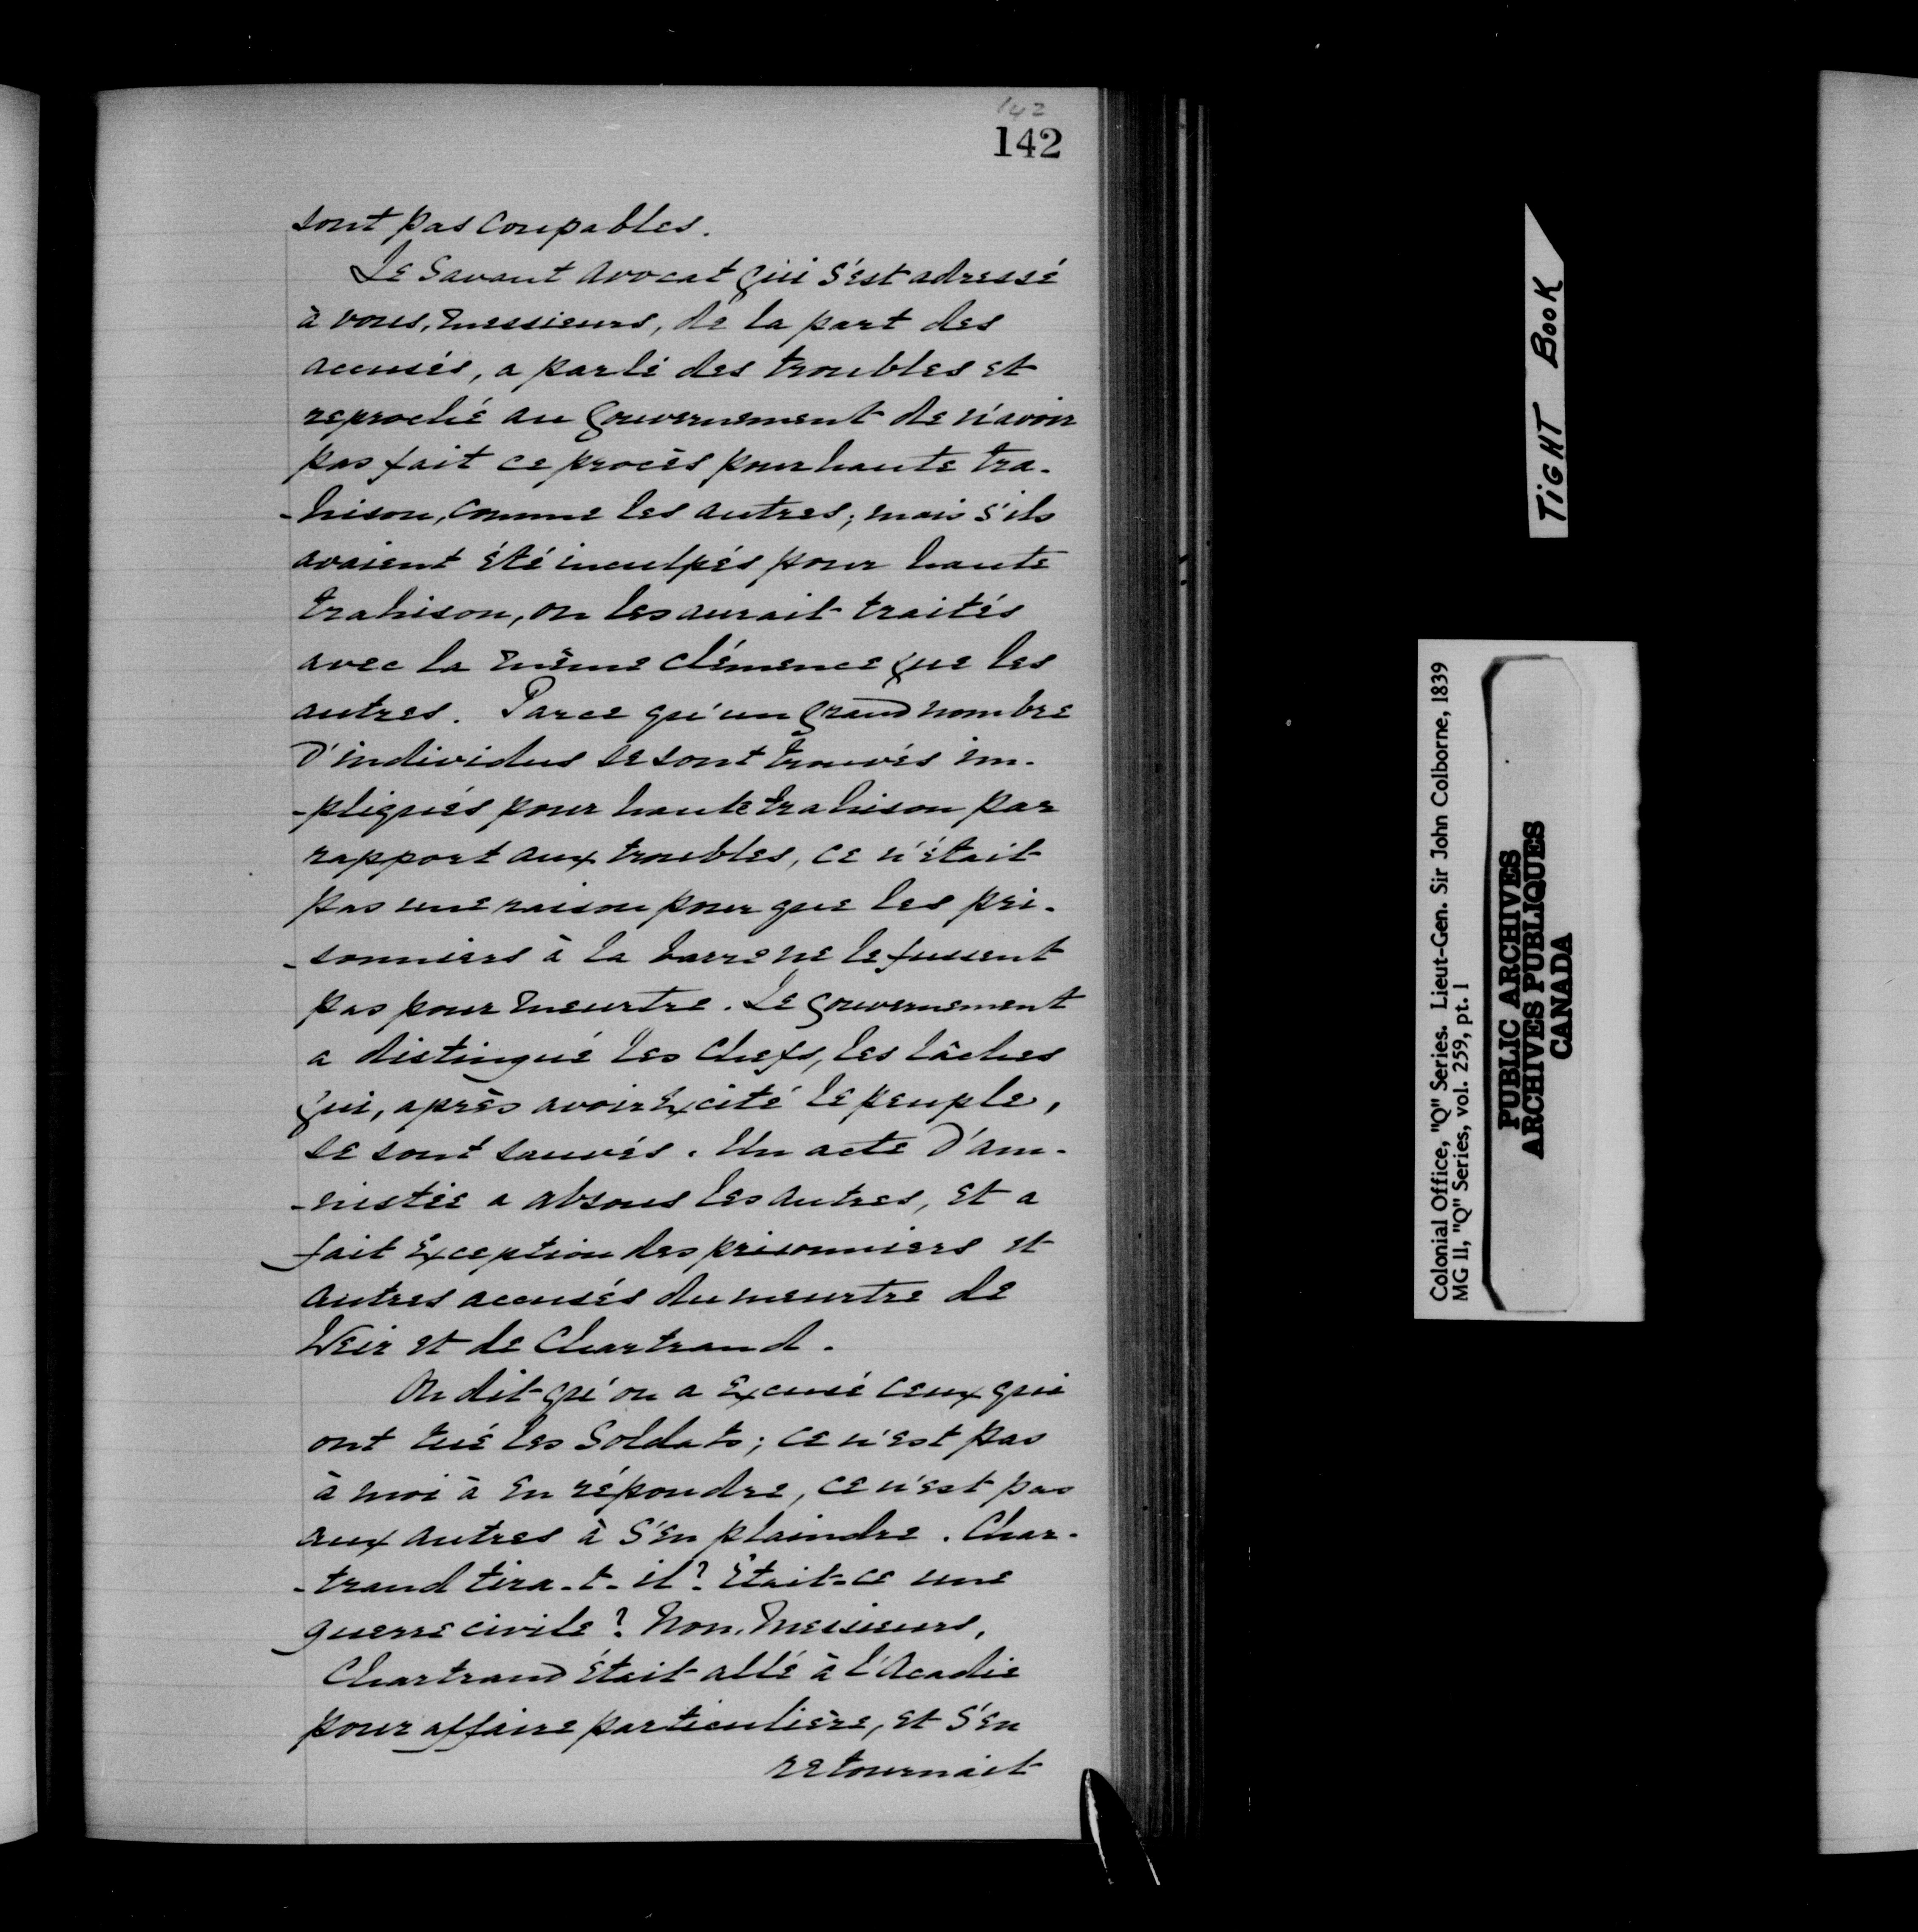 142
142
sont pas coupables.
Le savant avocat qui s'est adressé
à vous, messieurs, de la part des
accusés, a parlé des troubles et
reproché au gouvernement de n'avoir
pas fait ce procès pour haute tra-
-hison, comme les autres; mais s'ils
avaient été inculpés pour haute
trahison, on les aurait traités
avec la même clémence que les
autres. Parce qu'un grand nombre
d'individus se sont trouvés im-
-pliqués pour haute trahison par
rapport aux troubles, ce n'était
pas une raison pour que les pri-
-sonniers à la barre ne le fussent
pas pour meurtre. Le gouvernement
a distingué les chefs, les lâches
qui, après avoir excité le peuple,
se sont sauvés. Un acte d'am-
-nistie a absous les autres, et a
fait exception des prisonniers et
autres accusés du meurtre de
Weir et de Chartrand.
On dit qu'on a excusé ceux qui
ont tué les soldats; ce n'est pas
à moi à en répondre, ce n'est pas
aux autres à s'en plaindre. Char-
-trand tira-t-il? Etait-ce une
guerre civile? Non, Messieurs,
Chartrand était allé à l'Acadie
pour affaire particulière, et s'en
retournait
TIGHT BOOK
Colonial Office, "Q" Series. Lieut-Gen. Sir John Colborne, 1839
MG 11, "Q" Series, vol. 259, pt. 1
PUBLIC ARCHIVES
ARCHIVES PUBLIQUES
CANADA